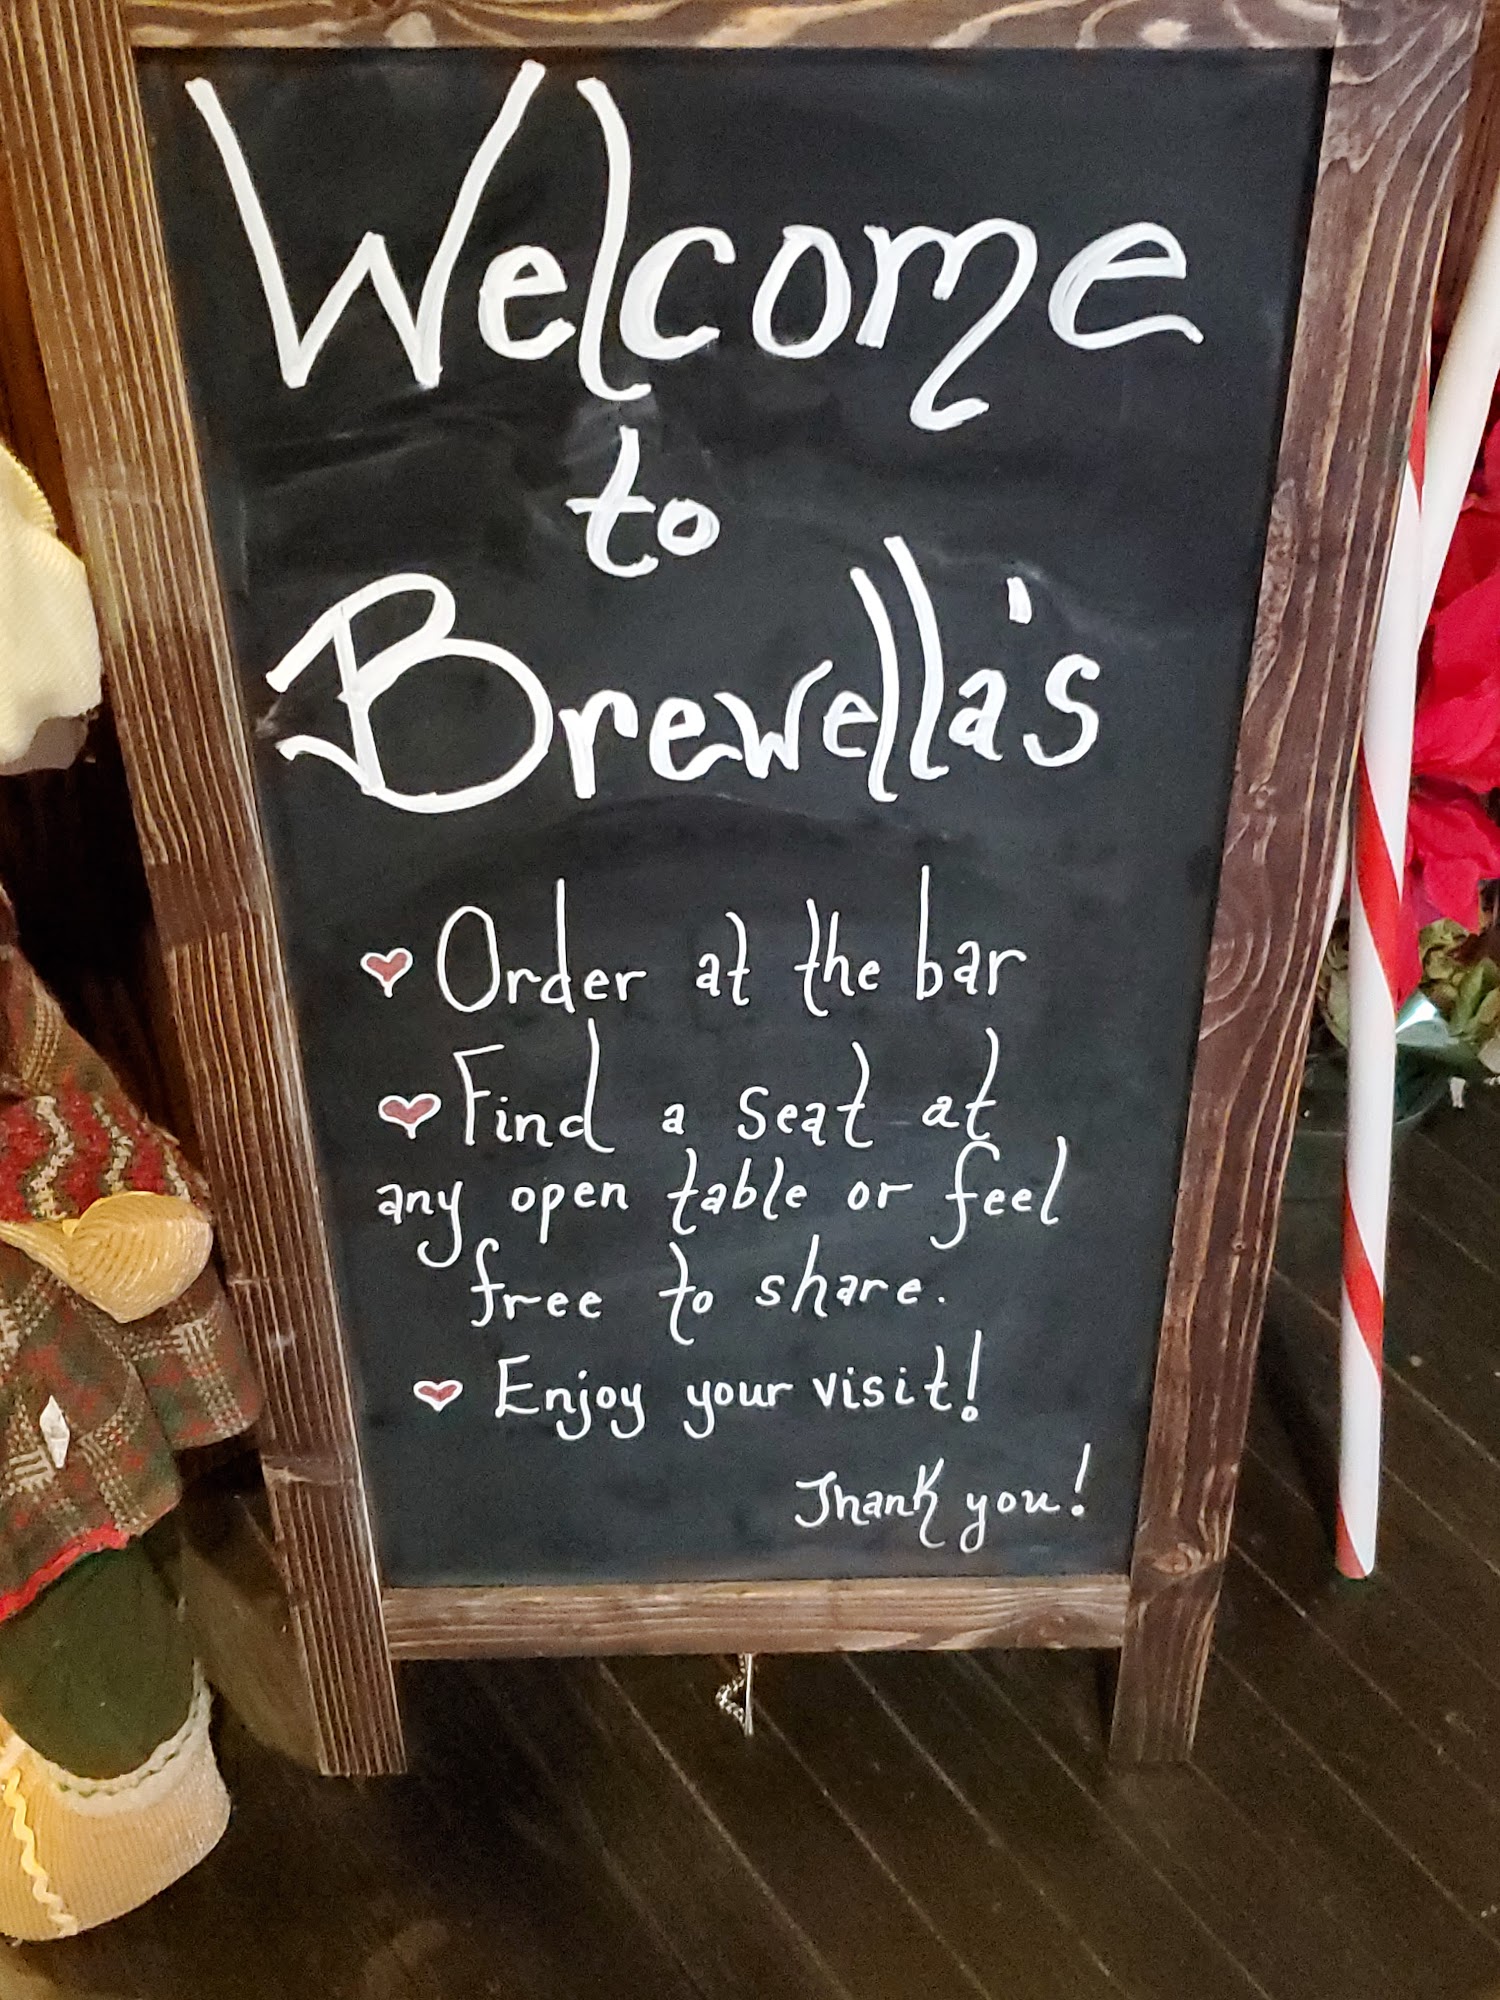 Welcome
to
Brewella's
Order at the bar
Find a seat at
any open table or feel
free to share.
Enjoy your visit!
Thank you!